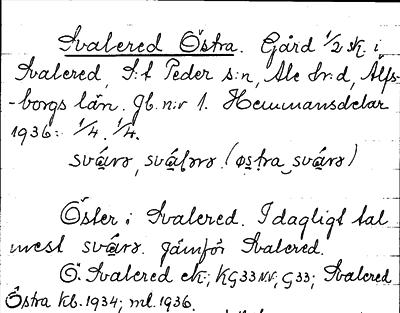 Svalered Östra. Gård 1/2 sk. i
Svalered, S:t Peder s:n, Ale hr:d, Älfs-
-borgs län. Jb. n:r 1. Hemmansdelar
1936: 1/4. 1/4.
svą̊rə, svą̊lərə. (østra svą̊rə)
Öster i Svalered. I dagligt tal
mest svą̊rə. Jämför Svalered.
Ö. Svalered ek.; KG33NV, G33; Svalered
Östra kb. 1934; ml. 1936.